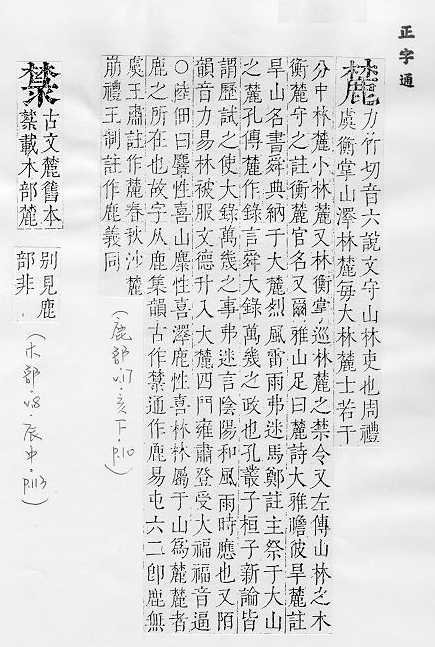 正字通
麓 力竹切音六說文守山林吏也周禮
虞衡掌山澤林麓每大林麓士若干
分中林麓小林麓又林衡掌巡林麓之禁令又左傳山林之木
衡麓守之註衡麓官名又爾雅山足曰麓詩大雅瞻彼旱麓註
旱山名書舜典納于大麓烈風雷雨弗迷馬鄭註主祭于大山
之麓孔傳麓作錄言舜大錄萬幾之政也孔叢子桓子新論皆
謂歷試之使大錄萬幾之事弗迷言陰陽和風雨時應也又陌
韻音力易林被服文德升入大麓四門雍肅登受大福福音逼
○陸佃曰麞性喜山麋性喜澤鹿性喜林林屬于山爲麓麓者
鹿之所在也故字从鹿集韻古作禁通作鹿易屯六二卽鹿無
虞王肅註作麓春秋沙麓
崩禮王制註作鹿義同
(鹿部.亥下.P.10)
古文麓舊本
禁載木部麓
別見鹿
部非
(木部.辰中.P.113)